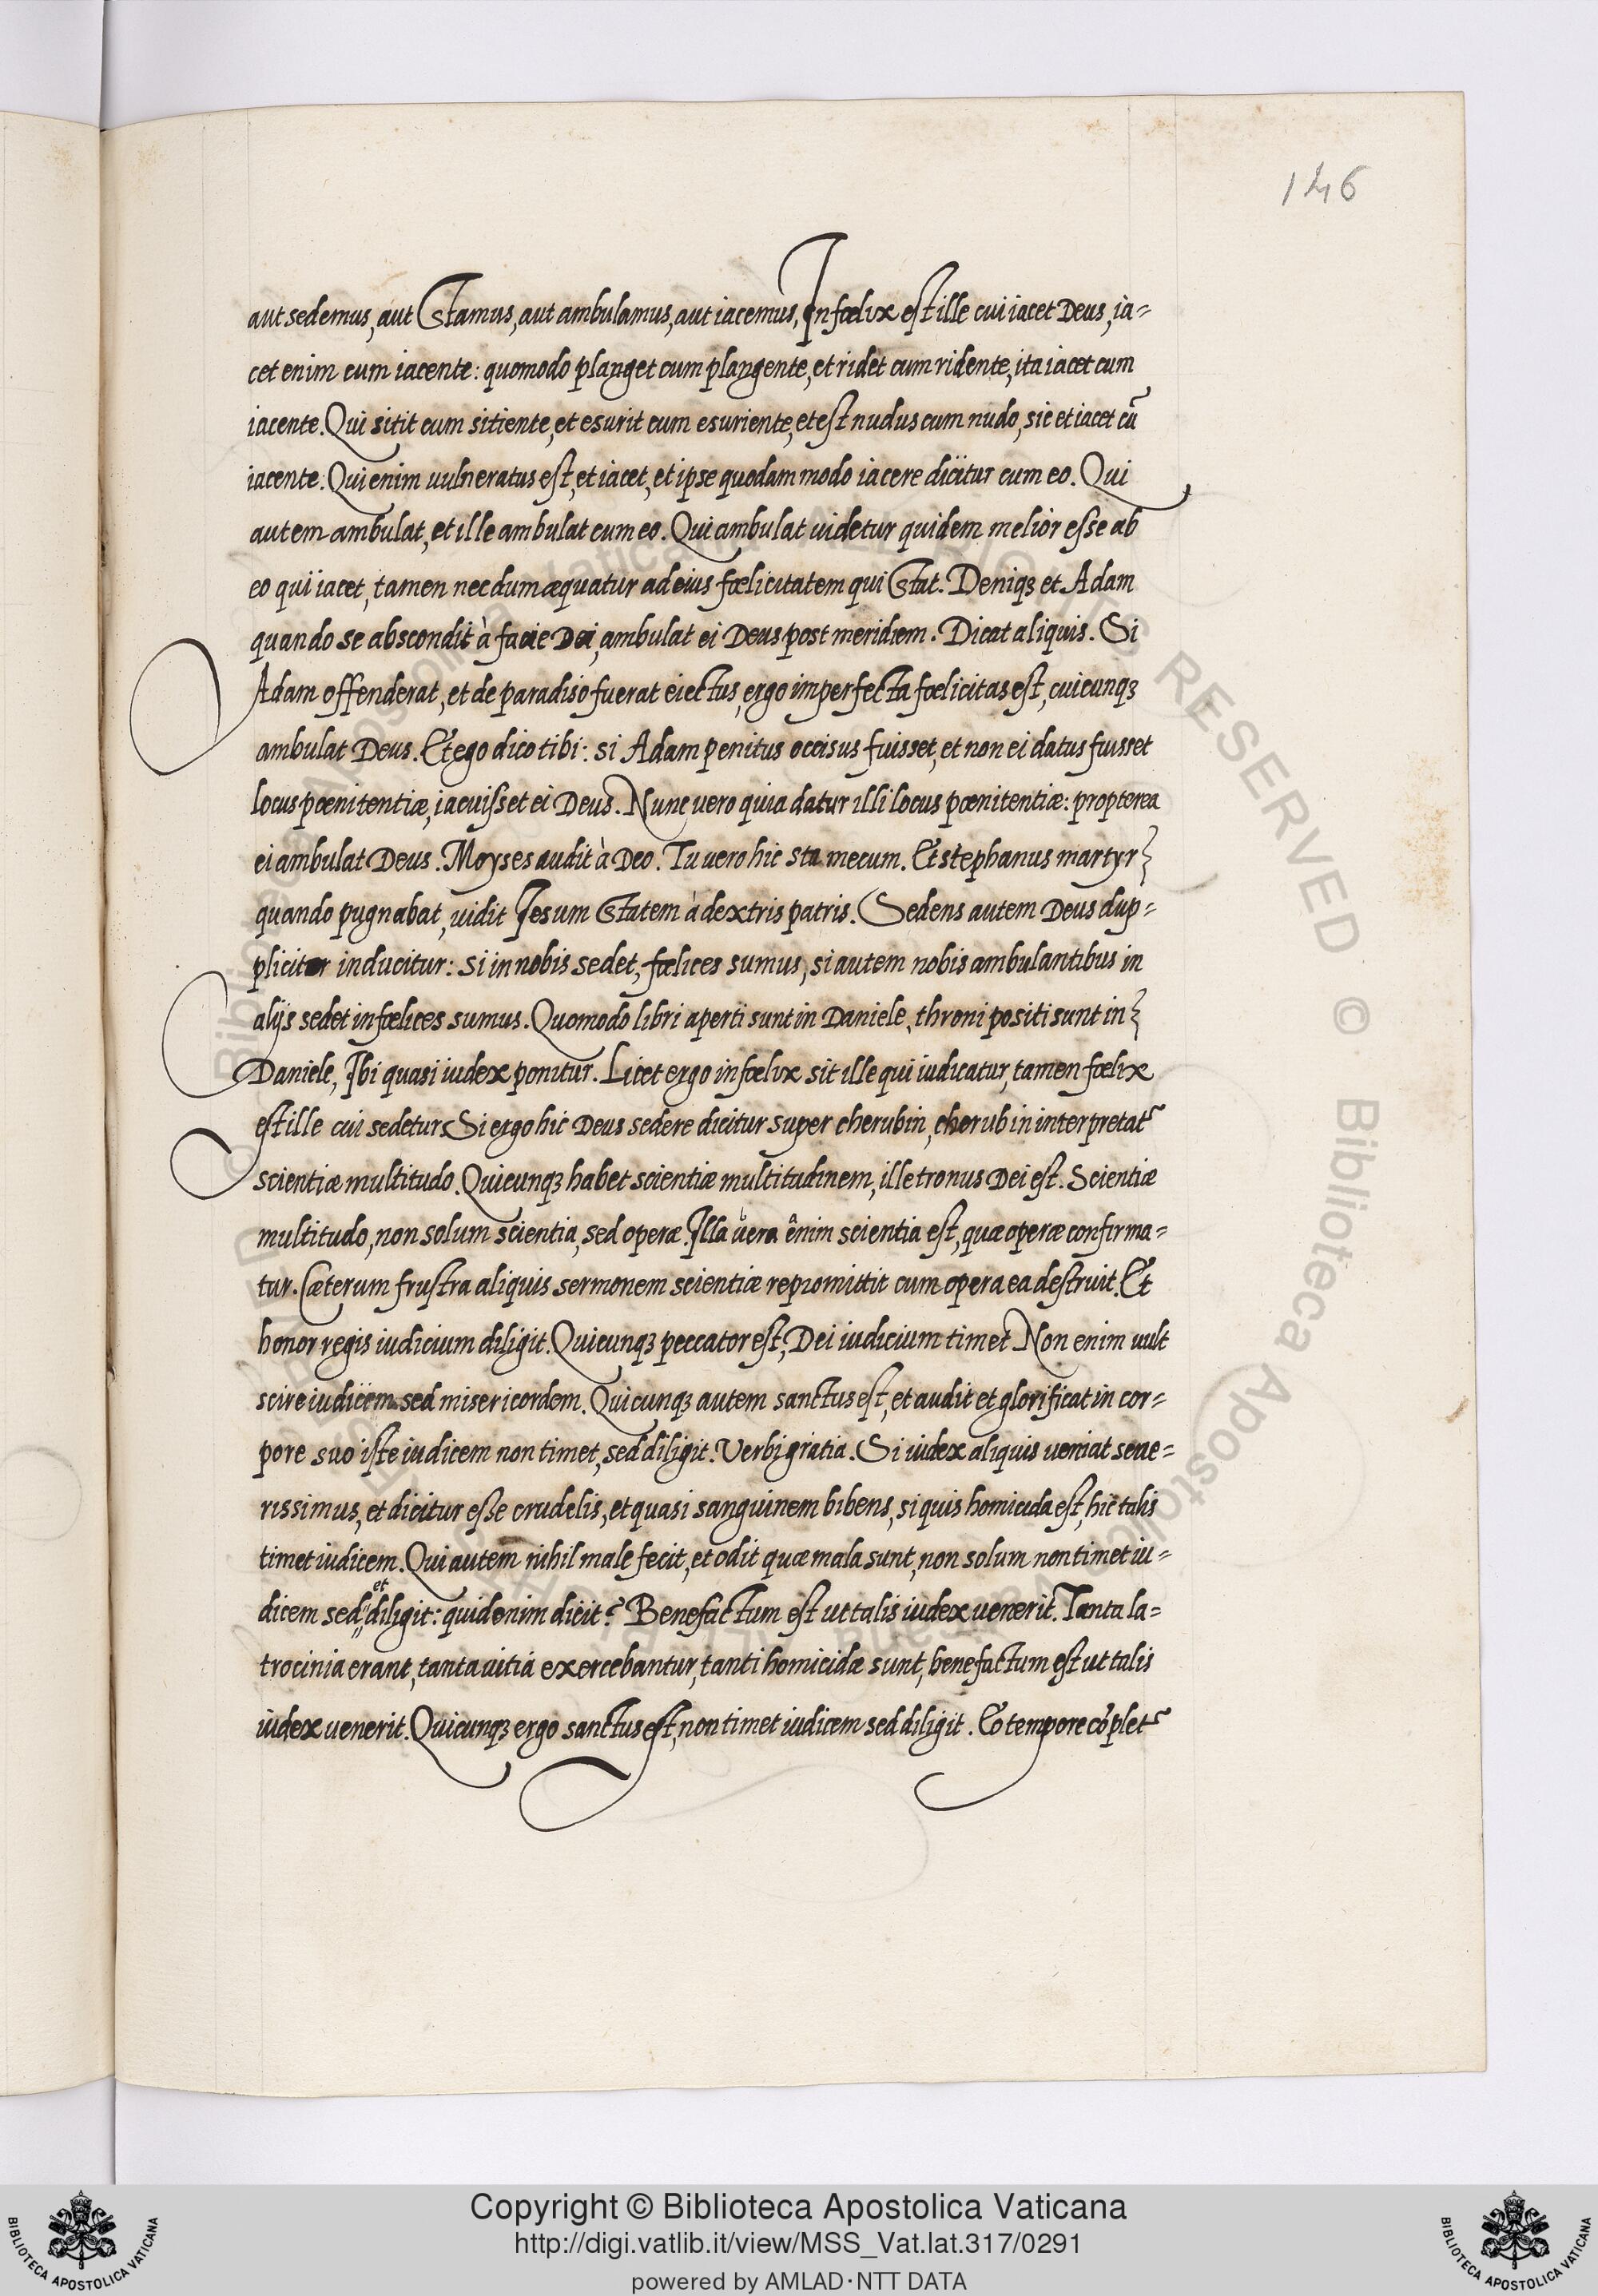 146
aut sedemus, aut stamus, aut ambulamus, aut iacemus, Infœlix est ille cui iacet Deus, ia=
cet enim cum iacente: quomodo planget cum plangente, et ridet cum ridente, ita iacet cum
iacente. Qui sitit cum sitiente, et esurit cum esuriente, et est nudus cum nudo, sic et iacet cū
iacente: Qui enim vulneratus est, et iacet, et ipse quodammodo iacere dicitur cum eo. Qui
autem ambulat, et ille ambulat cum eo. Qui ambulat videtur quidem melior esse ab
eo qui iacet, tamen necdum æquatur ad eius fœlicitatem qui stat. Deniqꝫ et Adam
quando se abscondit à facie Dei, ambulat ei Deus post meridiem. Dicat aliquis. Si
Adam offenderat, et de paradiso fuerat eiectus, ergo imperfecta fœlicitas est, cuicunqꝫ
ambulat Deus. Et ego dico tibi: si Adam penitus occisus fuisset, et non ei datus fuisset
locus pœnitentiæ, iacuisset ei Deus. Nunc vero quia datur illi locus pœnitentiæ: propterea
ei ambulat Deus. Moyses audit à Deo. Tu vero hic sta mecum. Et stephanus martyr
quando pugnabat, vidit Iesum statem à dextris patris. Sedens autem Deus dup=
pliciter inducitur: si in nobis sedet, fœlices sumus, si autem nobis ambulantibus in
alijs sedet infœlices sumus. Quomodo libri aperti sunt in Daniele, throni positi sunt in
Daniele, Ibi quasi iudex ponitur. Licet ergo infœlix sit ille qui iudicatur, tamen fœlix
est ille cui sedetur Si ergo hic Deus sedere dicitur super cherubin, cherubin interpretatr
scientiæ multitudo. Quicunqꝫ habet scientiæ multitudinem, ille tronus Dei est. Scientiæ
multitudo, non solum scientia, sed operæ. Illa vera enim scientia est, quæ operæ confirma=
tur. Cæterum frustra aliquis sermonem scientiæ repromittit cum opera ea destruit. Et
honor regis iudicium diligit. Quicunqꝫ peccator est, Dei iudicium timet Non enim vult
scire iudicem sed misericordem. Quicunqꝫ autem sanctus est, et audit et glorificat in cor=
pore suo iste iudicem non timet, sed diligit. Verbi gratia. Si iudex aliquis veniat seve=
rissimus, et dicitur esse crudelis, et quasi sanguinem bibens, si quis homicida est, hic talis
timet iudicem. Qui autem nihil male fecit, et odit quæ mala sunt, non solum non timet iu=
dicem sed et diligit: quid enim dicit? Benefactum est ut talis iudex venerit. Tanta la=
trocinia erant, tanta vitia exercebantur, tanti homicidæ sunt, benefactum est ut talis
iudex venerit. Quicunqꝫ ergo sanctus est, non timet iudicem sed diligit. Eo tempore cōpletr
Copyright © Biblioteca Apostolica Vaticana
http://digi.vatlib.it/view/MSS_Vat.lat.317/0291
powered by AMLAD·NTT DATA
BIBLIOTECA APOSTOLICA VATICANA
BIBLIOTECA APOSTOLICA VATICANA